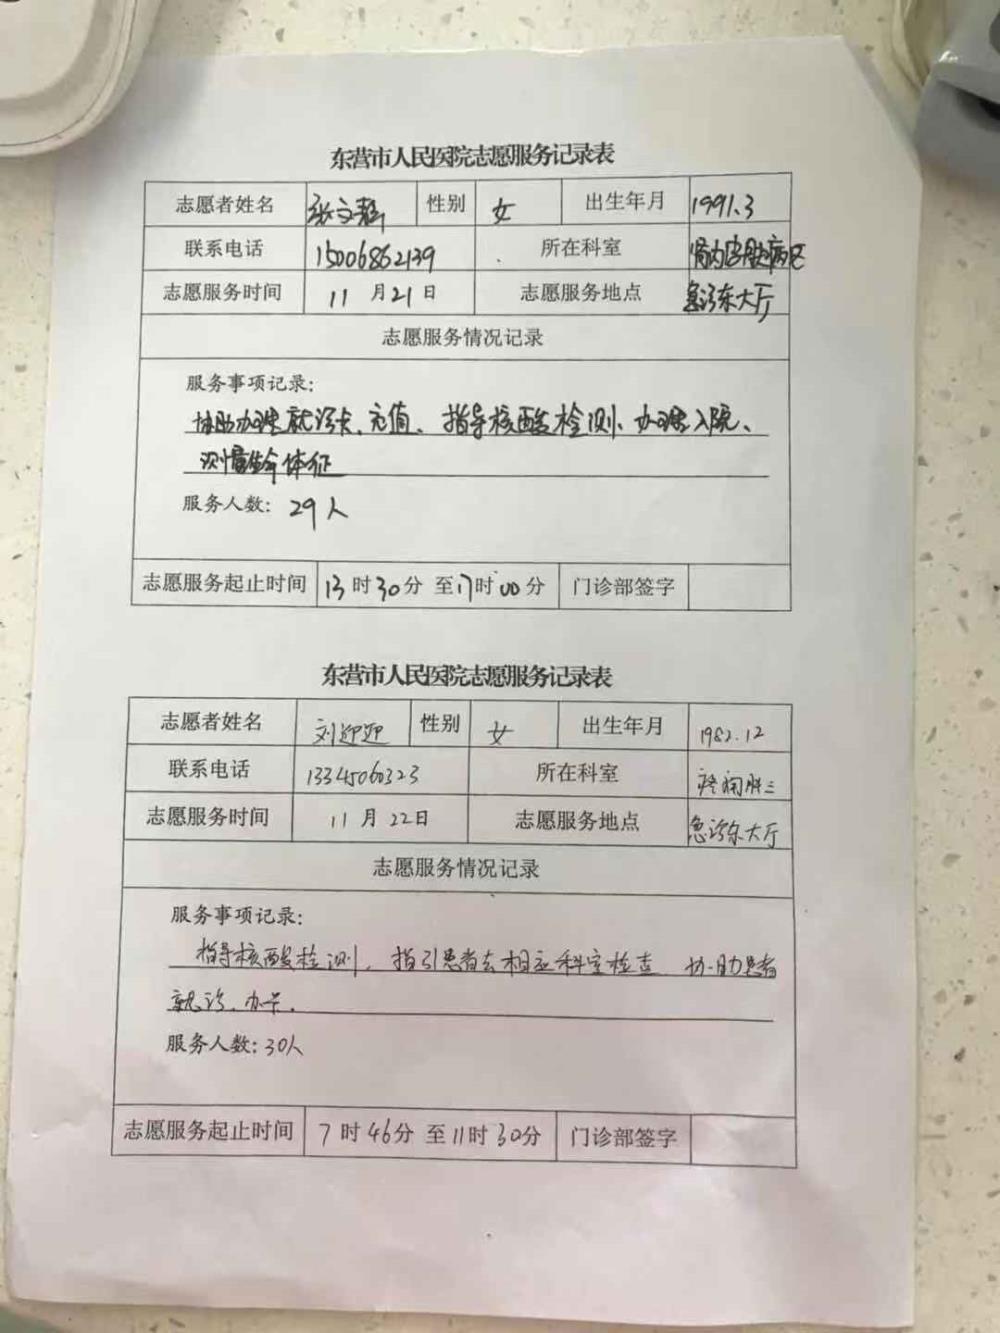 东营市人民医院志愿服务记录表
志愿者姓名 张文静 性别 女 出生年月 1991.3
联系电话 15006862139 所在科室 肾内皮肤病区
志愿服务时间 11月21日 志愿服务地点 急诊东大厅
志愿服务情况记录
服务事项记录：
协助办理就诊卡、充值、指导核酸检测、办理入院、
测量生命体征
服务人数：29人
志愿服务起止时间 13时30分 至17时00分 门诊部签字
东营市人民医院志愿服务记录表
志愿者姓名 刘迎迎 性别 女 出生年月 1982.12
联系电话 13345060323 所在科室
志愿服务时间 11月22日 志愿服务地点 急诊东大厅
志愿服务情况记录
服务事项记录：
指导核酸检测，指引患者去相应科室检查 协助患者
就诊、办卡.
服务人数：30人
志愿服务起止时间 7时46分 至11时30分 门诊部签字